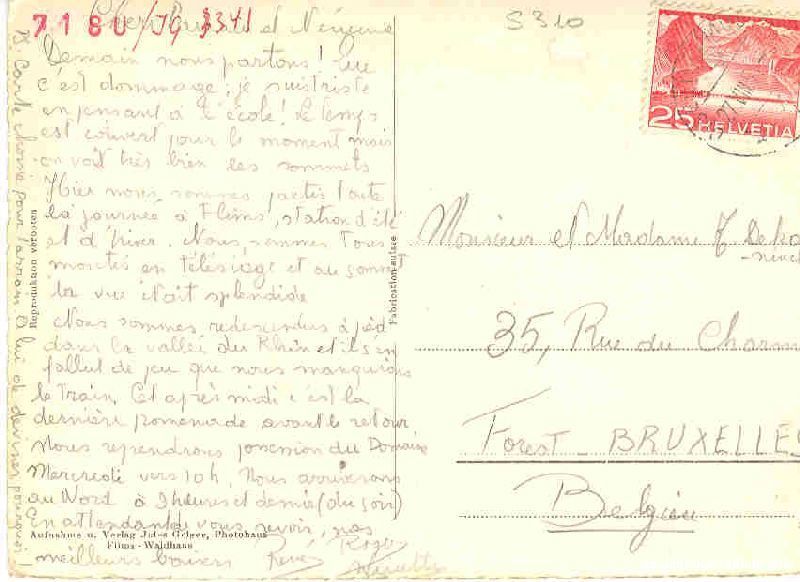 7180/JG 3341
S310
Chers et
Demain nous partons! Que
c'est dommage; je suis triste
en pensant à l'école! Le temps
est couvert pour le moment mais
on voit très bien les sommets
Hier nous sommes partis toute
la journée à Flims, station d'été
et d'hiver. Nous sommes tous
montés en télésiège et au sommet
la vue était splendide
Nous sommes redescendus à pied
dans la vallée du Rhin et il s'en
fallut de peu que nous manquions
le train. Cet après midi c'est la
dernière promenade avant le retour
Nous reprendrons possession du Domaine
Mercredi vers 10h. Nous arriverons
au Nord à 9 heures et demie (du soir)
En attendant de vous revoir, nos
meilleurs baisers René Roger
Carte choisie pour parrain à lui de deviner pourquoi!
Reproduktion verboten
Fabrication suisse
Aufnahme u. Verlag Photohaus
Flims-Waldhaus
25 HELVETIA
Monsieur et Madame
35, Rue du
Forest - BRUXELLES
Belgique